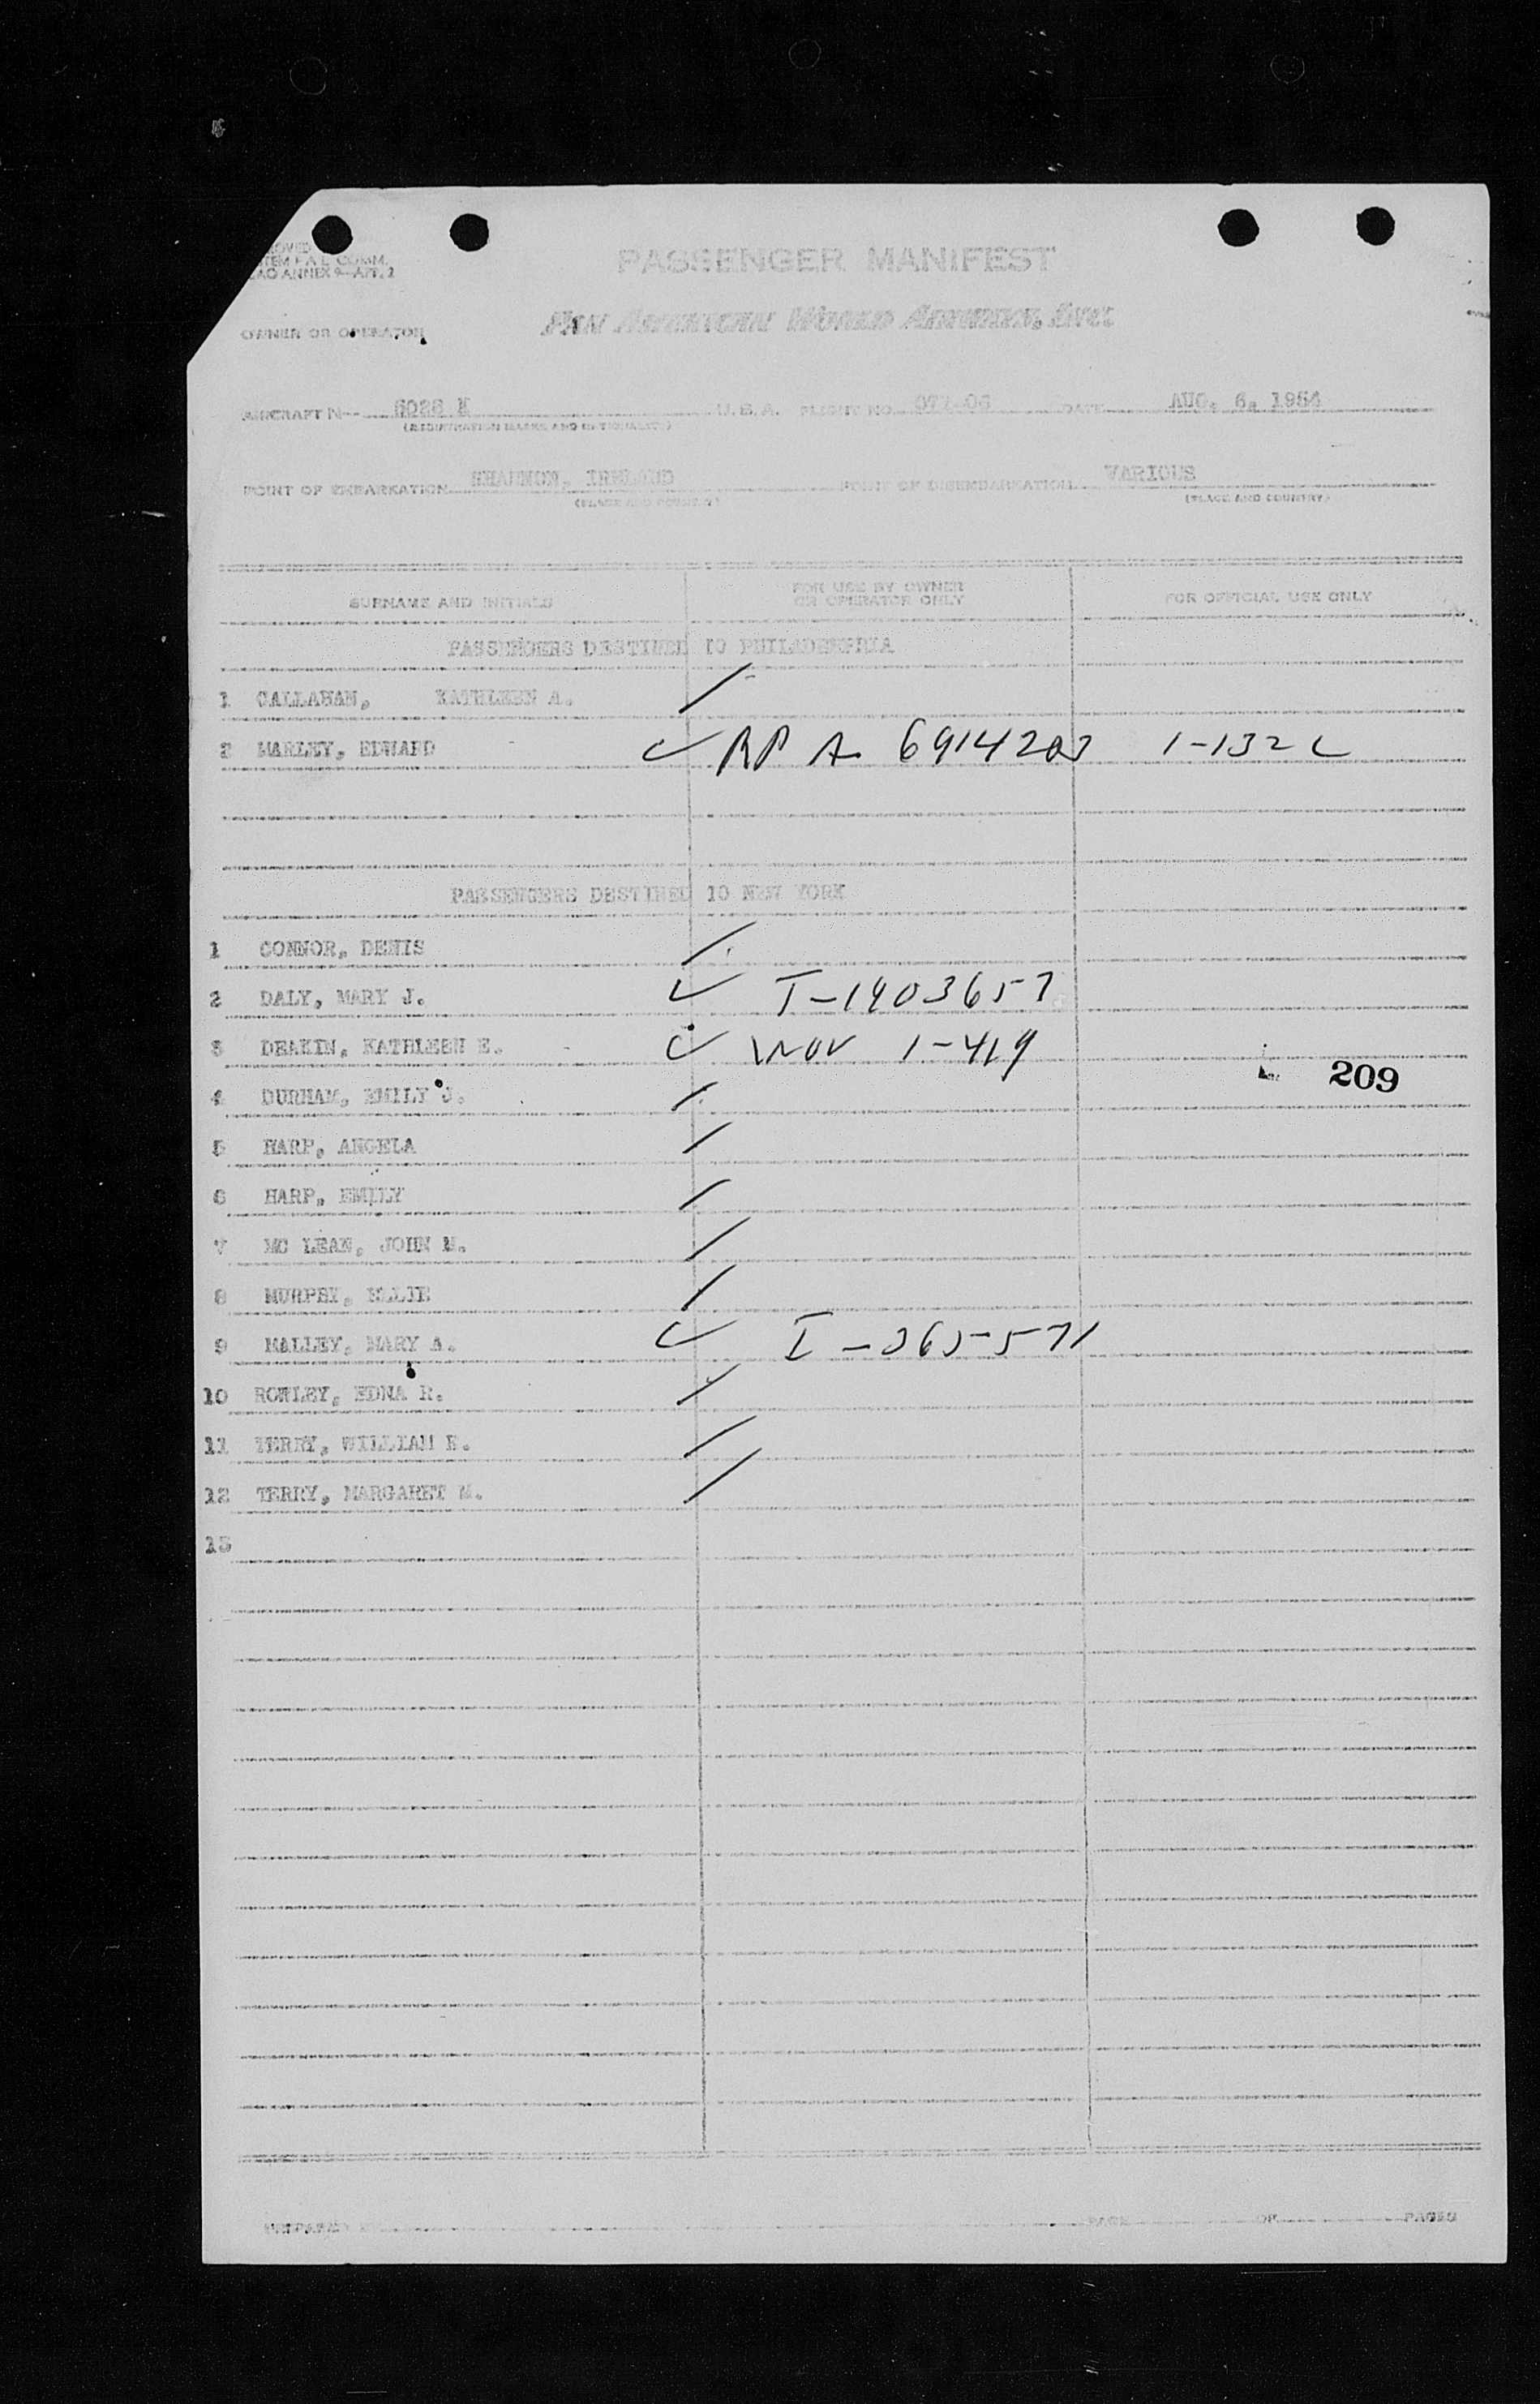 PASSENGER MANIFEST
ITEM F A L COMM.
ANNEX 9—APT. 2
OWNER OR OPERATOR
PAN AMERICAN WORLD AIRWAYS, INC.
AIRCRAFT N-- 6026 U.S.A. FLIGHT NO. 071-06 DATE AUG. 6, 1954
(REGISTRATION MARKS AND NATIONALITY)
POINT OF EMBARKATION SHANNON, IRELAND POINT OF DISEMBARKATION VARIOUS
(PLACE AND COUNTRY) (PLACE AND COUNTRY)
SURNAME AND INITIALS FOR USE BY OWNER OR OPERATOR ONLY FOR OFFICIAL USE ONLY
PASSENGERS DESTINED TO PHILADELPHIA
1 CALLAHAN, KATHLEEN A. /
2 MARLEY, EDWARD ✓ RP A 6914203 1-132 L
PASSENGERS DESTINED TO NEW YORK
1 CONNOR, DENIS /
2 DALY, MARY J. ✓ I-1403657
3 DEAKIN, KATHLEEN E. ✓ 1-419
209
4 DURHAM, EMILY J. /
5 HARP, ANGELA /
6 HARP, EMILY /
7 MC LEAN, JOHN M. /
8 MURPHY, ELLIE /
9 MALLEY, MARY A. ✓ I-365571
10 ROWLEY, EDNA R. /
11 TERRY, WILLIAM E. /
12 TERRY, MARGARET M. /
13
PREPARED BY PAGE OF PAGES